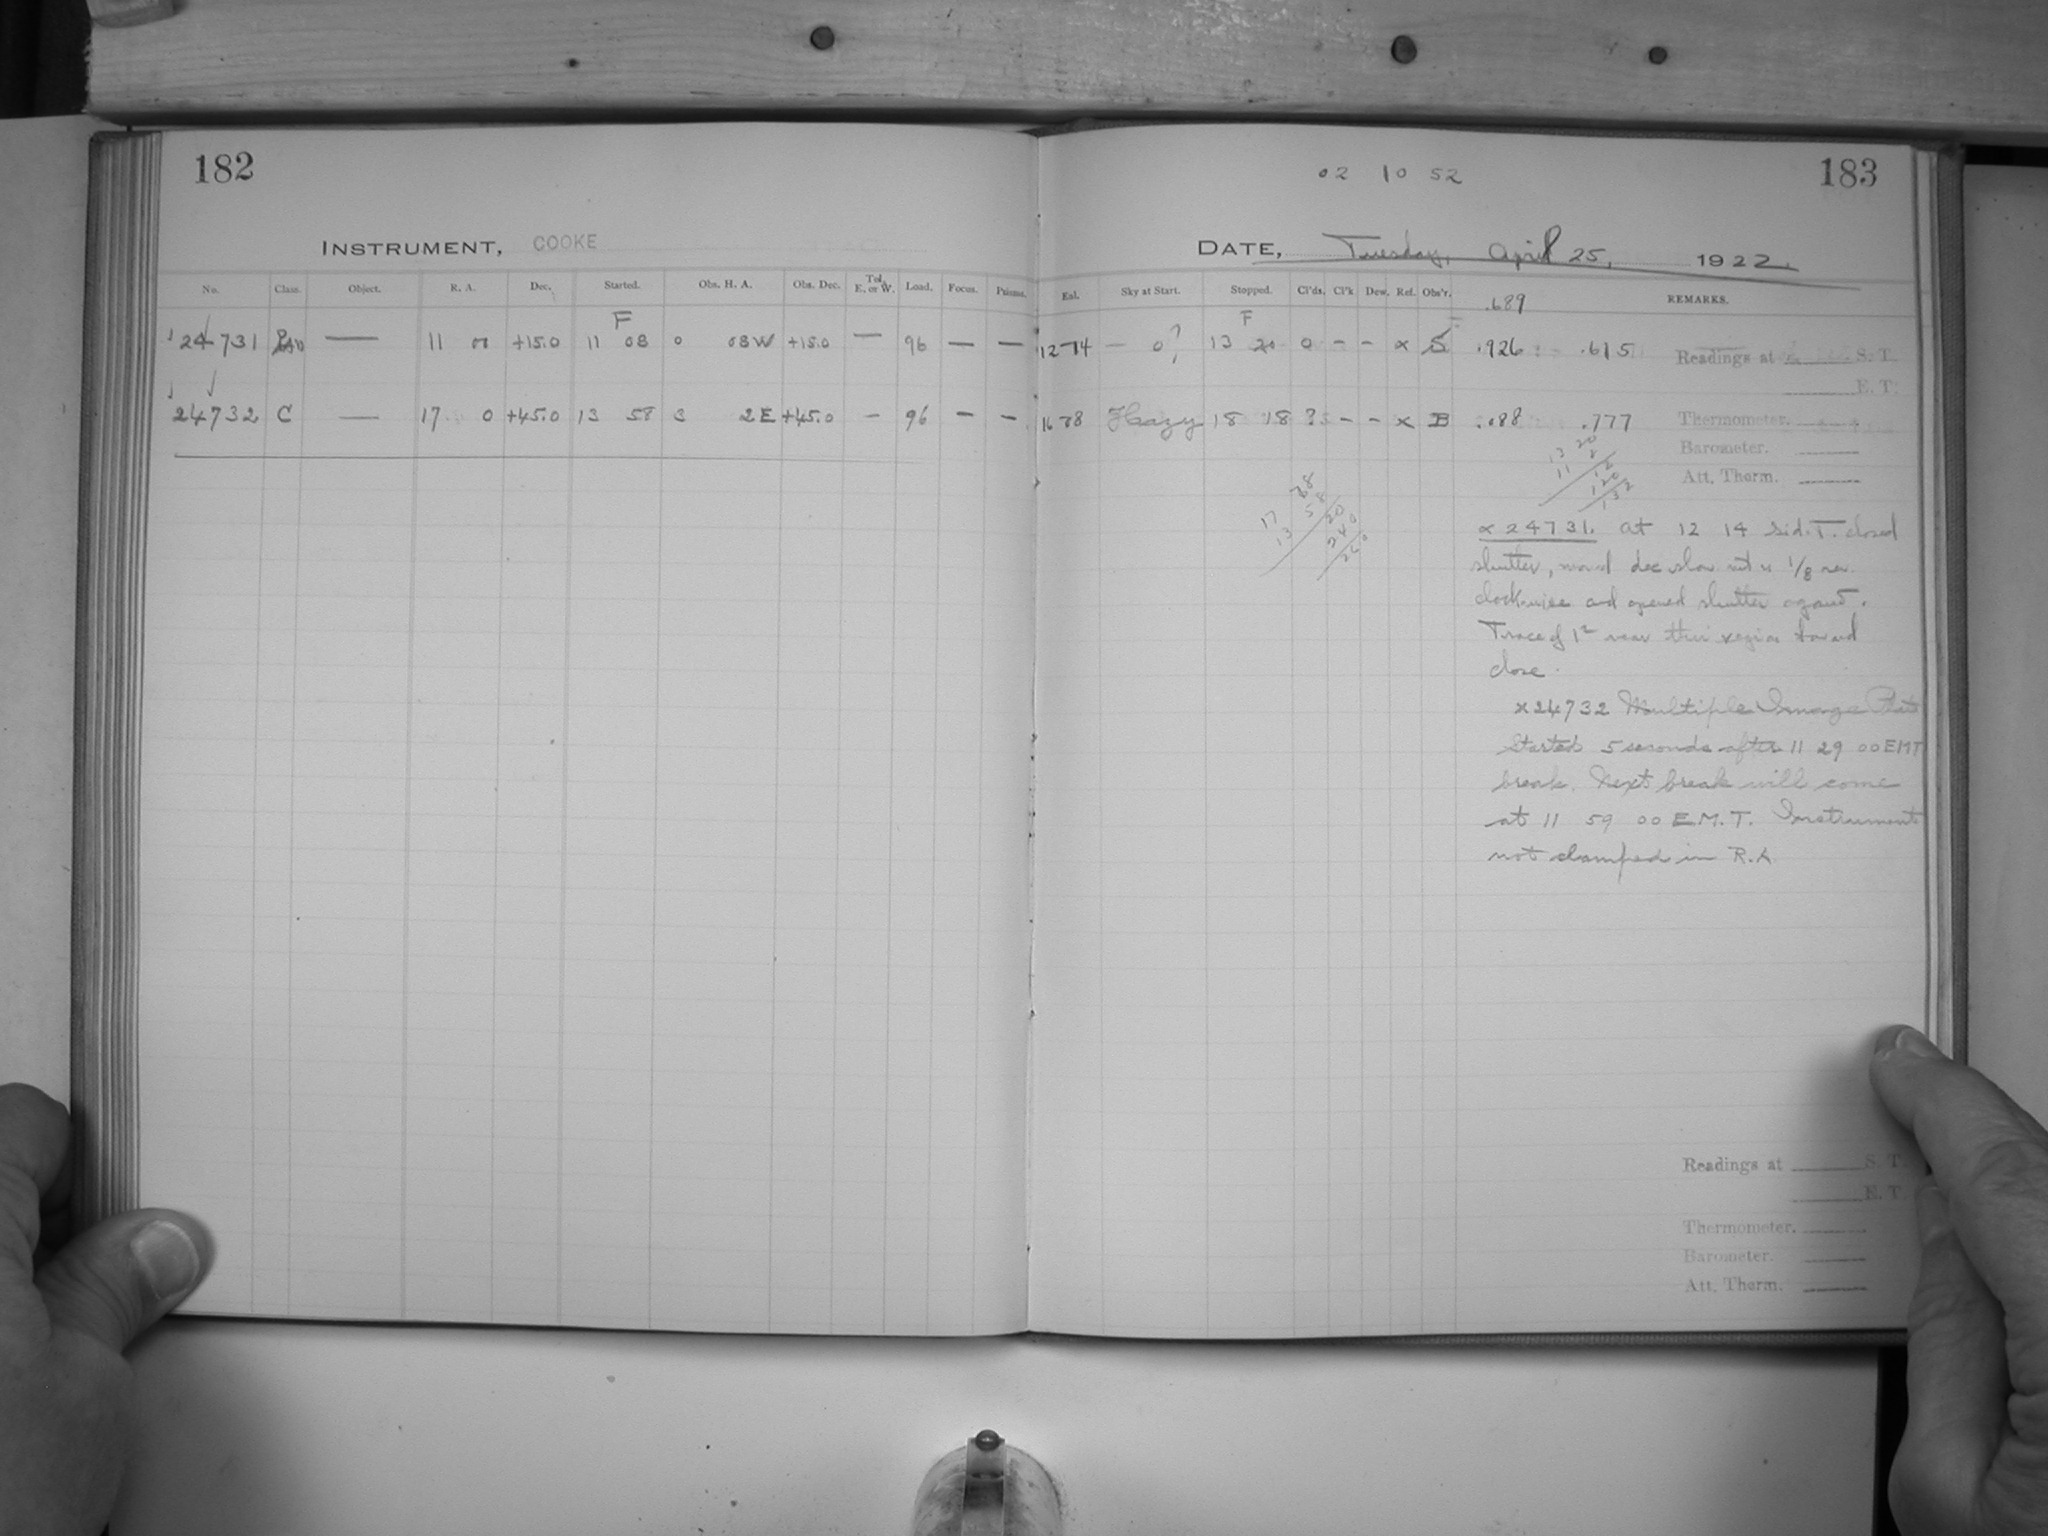 182
INSTRUMENT, COOKE
No. Class. Object. R. A. Dec. Started. Obs. H. A. Obs. Dec. Tel. E. or W. Load. Focus. Prisms.
F
24731 — 11 00 +15.0 11 08 0 08W +15.0 — 96 — —
24732 C — 17 0 +45.0 13 58 3 2E +45.0 — 96 — —
02 10 52
183
DATE, Tuesday, April 25, 1922.
Exl. Sky at Start. Stopped. Cl'ds. Cl'k Dew. Ref. Obs'r. .689 REMARKS.
F
12 14 — 0? 13 20 0 - - x S .926 .615
Readings at S. T.
E. T.
16 78 Hazy 18 18 ? - - x B .088 .777
Thermometer.
Barometer.
Att. Therm.
13 20
11 8
12
120
132
17 78
13 58
20
240
260
x 24731. at 12 14 Sid. T. closed
shutter, moved dec slow 1/8 rev.
clockwise and opened shutter again.
Trace of near this region toward
close.
x24732 Multiple Image Plate
Started 5 seconds after 11 29 00 EMT
break. Next break will come
at 11 59 00 E.M.T. Instrument
not clamped in R.A
Readings at S. T.
E. T.
Thermometer.
Barometer.
Att. Therm.